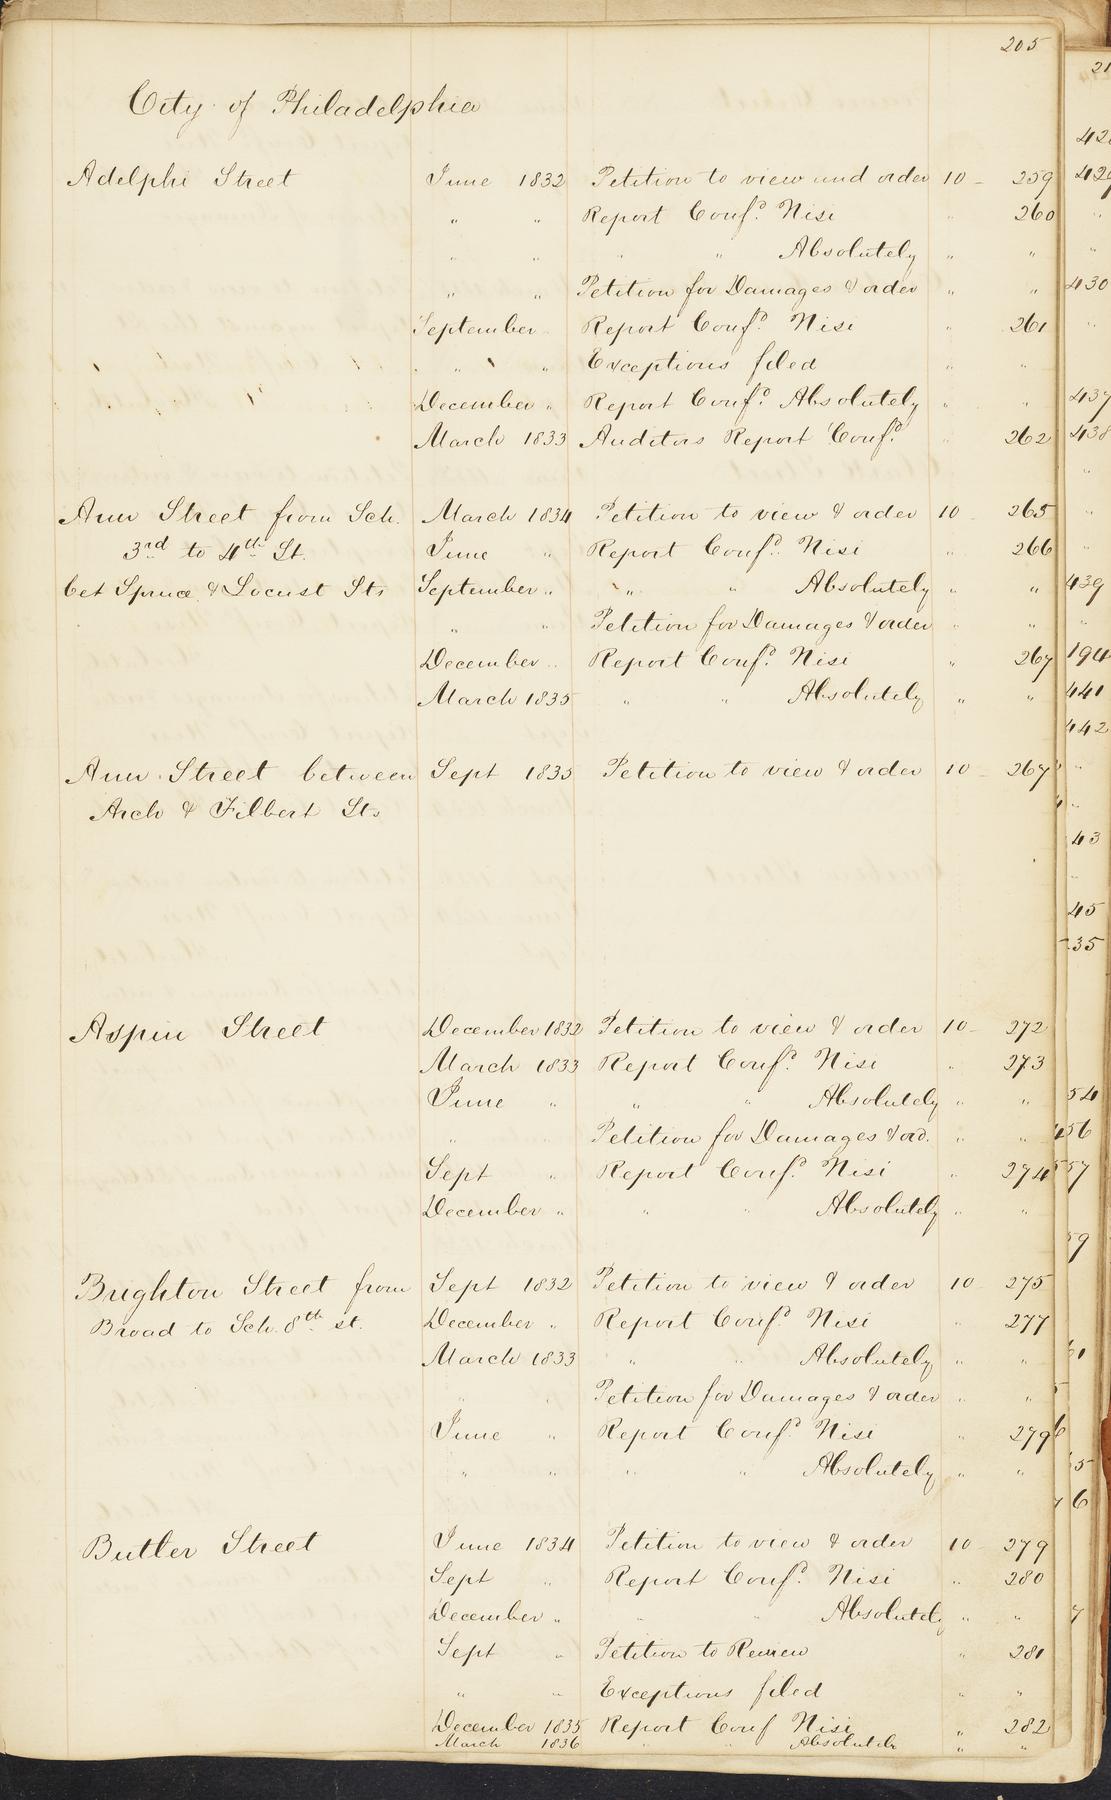 205
City of Philadelphia
Adelphi Street June 1832 Petition to view and order 10 - 259
" " Report Conf.d Nisi " 260
" " " " Absolutely " "
" " Petition for Damages & order " "
September " Report Conf.d Nisi " 261
" " Exceptions filed " "
December " Report Conf.d Absolutely " "
March 1833 Auditors Report Conf.d " 262
Ann Street from Sch. March 1834 Petition to view & order 10 - 265
3rd to 4th St. June " Report Conf.d Nisi 266
bet Spruce & Locust Sts September " " " Absolutely " "
" " Petition for Damages & order " "
December " Report Conf.d Nisi " 267
March 1835 " " Absolutely " "
Ann Street between Sept 1835 Petition to view & order 10 - 267
Arch & Filbert Sts
Aspin Street December 1832 Petition to view & order 10 - 272
March 1833 Report Conf.d Nisi " 273
June " " " Absolutely " "
" Petition for Damages & ord. " "
Sept " Report Conf.d Nisi " 274
December " " " Absolutely " "
Brighton Street from Sept 1832 Petition to view & order 10 - 275
Broad to Sch. 8th st. December " Report Conf.d Nisi " 277
March 1833 " " Absolutely " "
" " Petition for Damages & order " "
June " Report Conf.d Nisi " 279
" " " " Absolutely " "
Butler Street June 1834 Petition to view & order 10 - 279
Sept " Report Conf.d Nisi " 280
December " " " Absolutely " "
Sept " Petition to Review " 281
" " Exceptions filed " "
December 1835 Report Conf Nisi " 282
March 1836 " " Absolutely " "
430
437
438
439
194
441
442
43
45
35
54
56
57